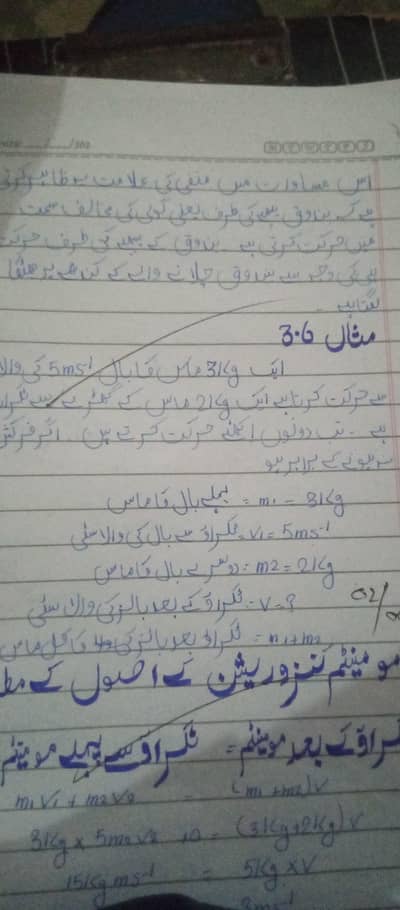 اس مساوات میں منفی کی علامت یہ ظاہر کرتی
ہے کہ بندوق پیچھے کی طرف یعنی گولی کی مخالف سمت
میں حرکت کرتی ہے۔ بندوق کے پیچھے کی طرف حرکت
ہی کی وجہ سے بندوق چلانے والے کے کندھے پر جھٹکا
لگتا ہے۔
مثال 3.6
ایک 3kg ماس کا بال 5ms⁻¹ کی ولا
سے حرکت کرتا ہے ایک 2kg ماس کے کھڑے سے ٹکرا
ہے۔ تب دونوں اکھٹے حرکت کرتے ہیں۔ اگر فرکش
نہ ہونے کے برابر ہو
پہلے بال کا ماس = m1 = 3kg
ٹکراؤ سے بال کی ولاسٹی = v1 = 5ms⁻¹
دوسرے بال کا ماس : m2 = 2kg
ٹکراؤ کے بعد بالز کی ولاسٹی : v = ?
ٹکراؤ بعد بالز کی کا کل ماس = m1+m2
مومینٹم کنزرویشن کے اصول کے مط
ٹکراؤ کے بعد مومینٹم = ٹکراؤ سے پہلے مومینٹم
m1v1 + m2v2 = (m1+m2)v
3kg x 5m2v2 = (3kg+2kg)v
15kgms⁻¹ = 5kg x v
3ms⁻¹